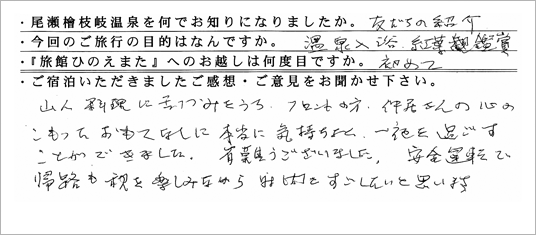 ・尾瀬檜枝岐温泉を何でお知りになりましたか。 友だちの紹介
・今回のご旅行の目的はなんですか。 温泉入浴 紅葉観賞
・『旅館ひのえまた』へのお越しは何度目ですか。 初めて
・ご宿泊いただきましたご感想・ご意見をお聞かせ下さい。
山人料理に舌つづみをうち、フロントの方、仲居さんの心の
こもったおもてなしに本当に気持ちよく、一夜を過ごす
ことができました。有難うございました。安全運転で
帰路も 楽しみながら をすごしたいと思い